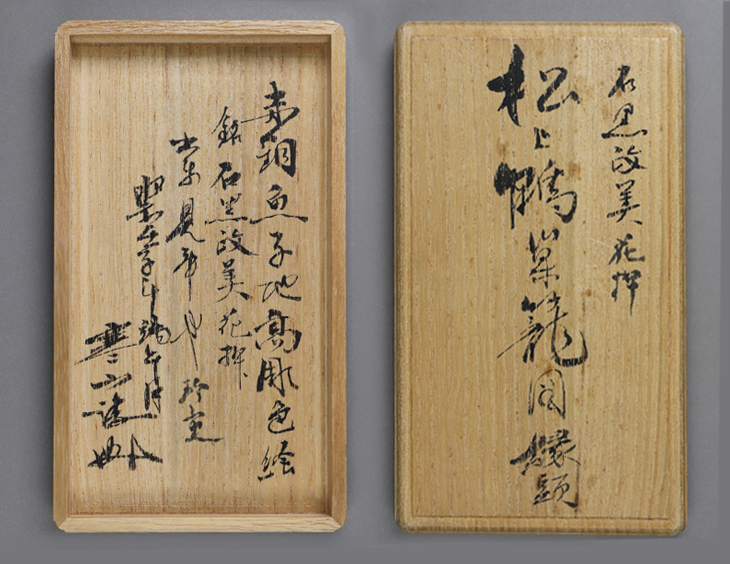 石黒政美花押
松上鶴巣籠図縁頭
赤銅魚子地高彫色絵
銘石黒政美花押
出来見事也珍重
月
寒山誌